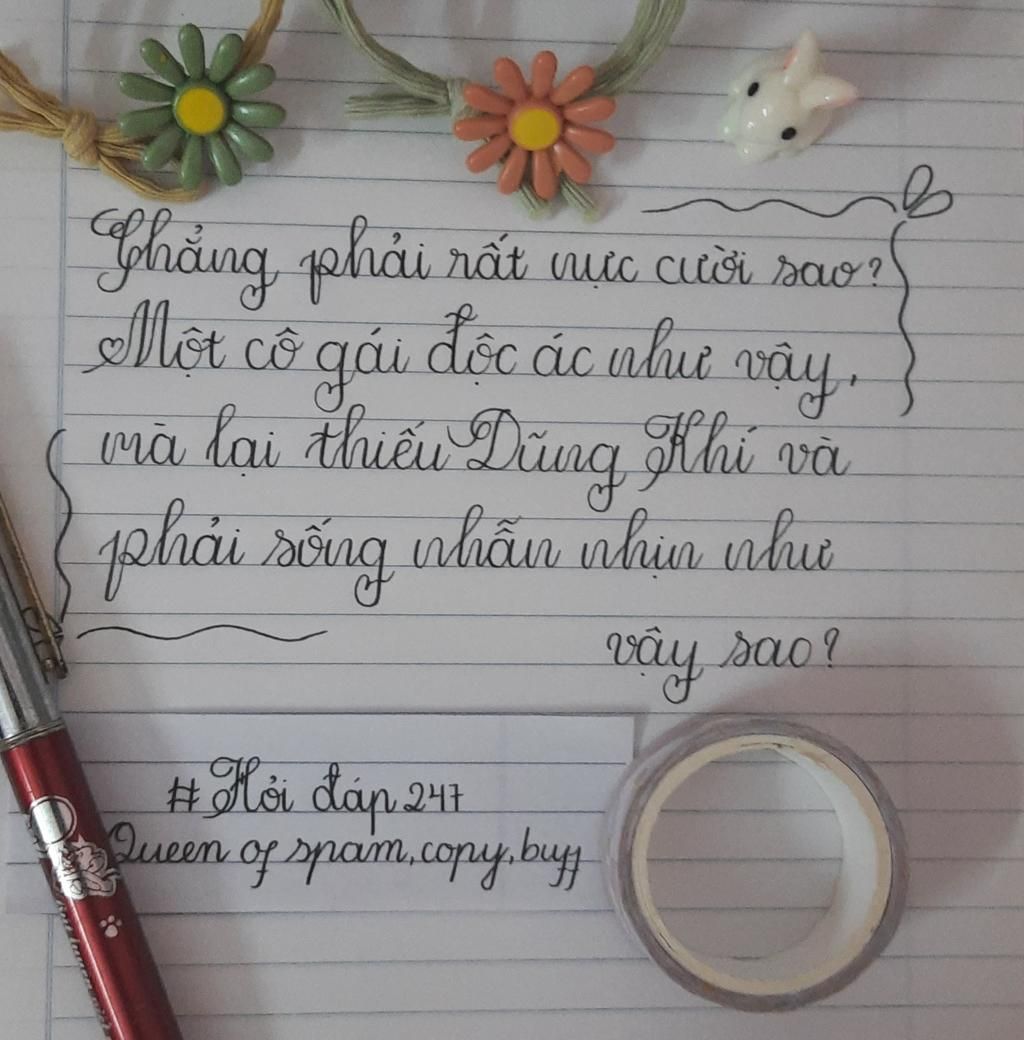 Chẳng phải rất nực cười sao?
Một cô gái độc ác như vậy,
mà lại thiếu Dũng Khí và
phải sống nhẫn nhịn như
vậy sao?
#Hỏi đáp 247
Queen of spam, copy, buff